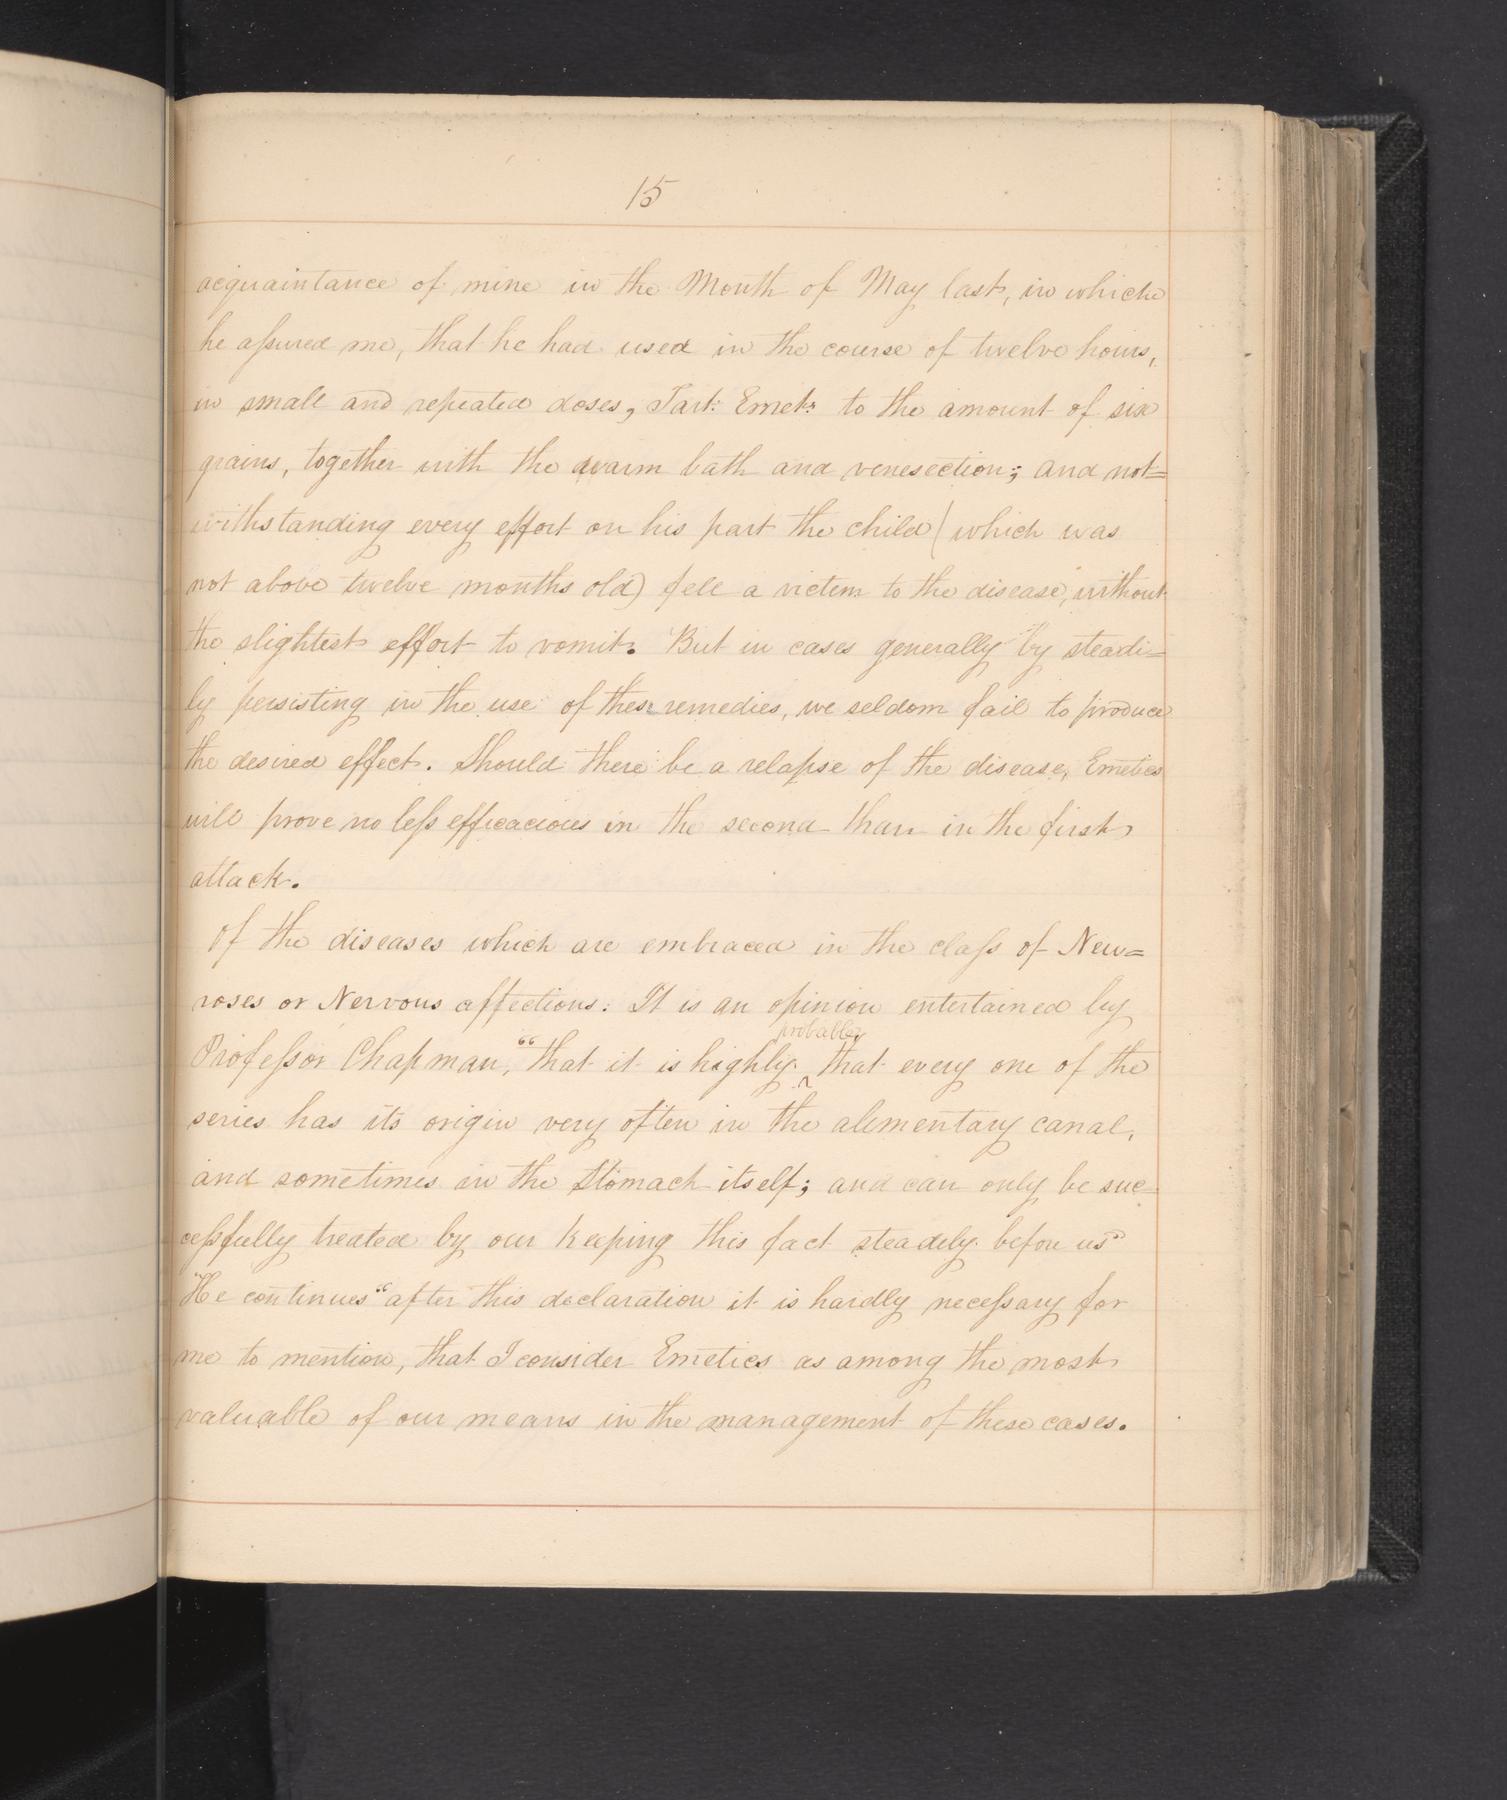 15
acquaintance of mine in the Month of May last, in which
he assured me, that he had used in the course of twelve hours,
in small and repeated doses, Tart: Emet: to the amount of six
grains, together with the warm bath and venesection; and not=
withstanding every effort on his part the child (which was
not above twelve months old) fell a victim to the disease, without
the slightest effort to vomit. But in cases generally by steadi=
ly persisting in the use of these remedies, we seldom fail to produce
the desired effect. Should there be a relapse of the disease, Emetics
will prove no less efficacious in the second than in the first
attack.
Of the diseases which are embraced in the class of Neu=
roses or Nervous affections: It is an opinion entertained by
probable
Professor Chapman, "that it is highly ^ that every one of the
series has its origin very often in the alimentary canal,
and sometimes in the Stomach itself; and can only be suc=
cessfully treated by our keeping this fact steadily before us"
He continues "after this declaration it is hardly necessary for
me to mention, that I consider Emetics as among the most
valuable of our means in the management of these cases.